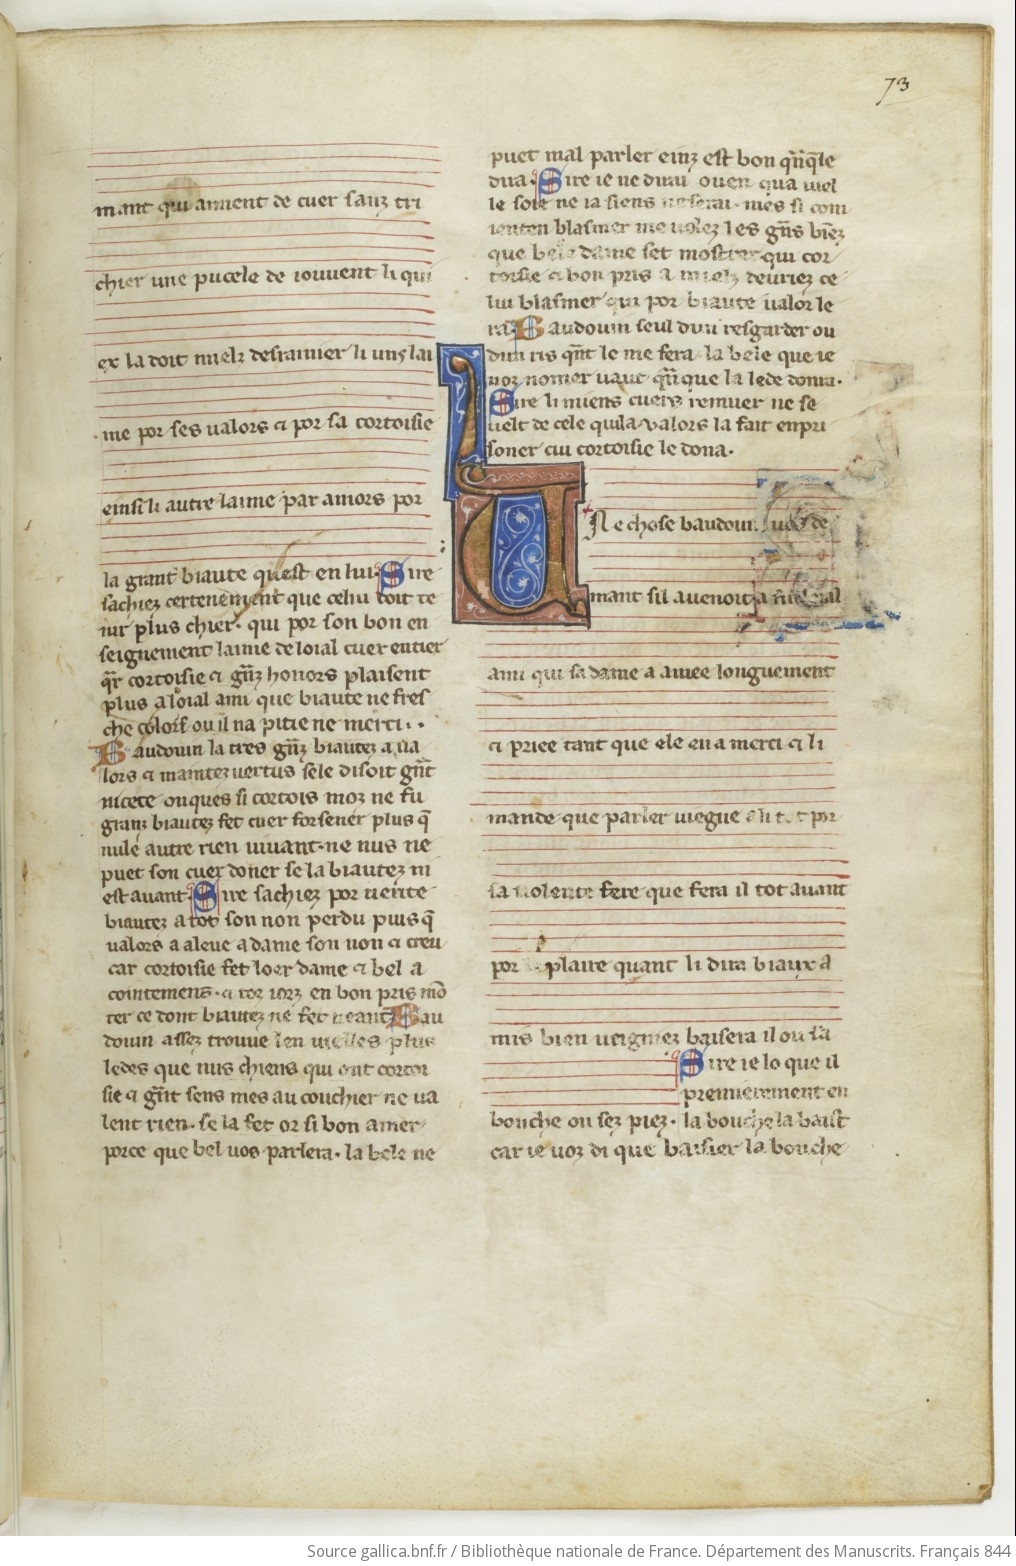 73
mant qui aiment de cuer sanz tri
chier une pucele de iouvent li qui
ex la doit mielz desrainier li uns lai
me por ses valors ⁊ por sa cortoisie
einsi li autre laime par amors por
la grant biaute quest en lui. Sire
sachiez certenement que celui doit te
nir plus chier. qui por son bon en
seignement laime de loial cuer entier
qr cortoisie ⁊ gnz honors plaisent
plus a loial ami que biaute ne fres
che color ou il na pitie ne merci.
Baudouin la tres gnz biautez a va
lors ⁊ maintez vertus sele disoit gnt
nicete onques si cortois moz ne fu
granz biautez fet cuer forsener plus q̄
nule autre rien vivant. ne nus ne
puet son cuer doner se la biautez ni
est avant. Sire sachiez por verite
biautez a tot son non perdu puis q̄
valors a aleve a dame son non ⁊ creu
car cortoisie fet loer dame ⁊ bel a
cointemens. ⁊ toz iorz en bon pris mō
ter ce dont biautez ne fet neant. Bau
douin assez trouve len vielles plus
ledes que nus chiens qui ont cortoi
sie ⁊ gnt sens mes au couchier ne va
lent rien. se la fet or si bon amer
porce que bel vos parlera. la bele ne
puet mal parler einz est bon qnqele
dira. Sire ie ne dirai ouen qua viel
le soie ne ia siens ne serai. mes si com
ienten blasmer me volez les gns biez
que bele dame set mostrer qui cor
toisie ⁊ bon pris a mielz deuriez ce
lui blasmer qui por biaute valor le
ra. Baudouin seul dun resgarder ou
dun ris qnt le me fera la bele que ie
noz nomer vaut qn que la lede donra.
Sire li miens cuers remuer ne se
velt de cele quila valors la fait enpri
soner cui cortoisie le dona.
Une chose baudouin vos de
mant sil avenoit a
ami qui sa dame a amee longuement
⁊ priee tant que ele en a merci ⁊ li
mande que parler viegne a li tot por
sa volente fere que fera il tot avant
por plaire quant li dira biaux a
mis bien veigniez baisera il ou sa
bouche ou sez piez. Sire ie lo que il
premierement en
la bouche la baist
car ie voz di que baisier la bouche
Source gallica.bnf.fr / Bibliothèque nationale de France. Département des Manuscrits. Français 844